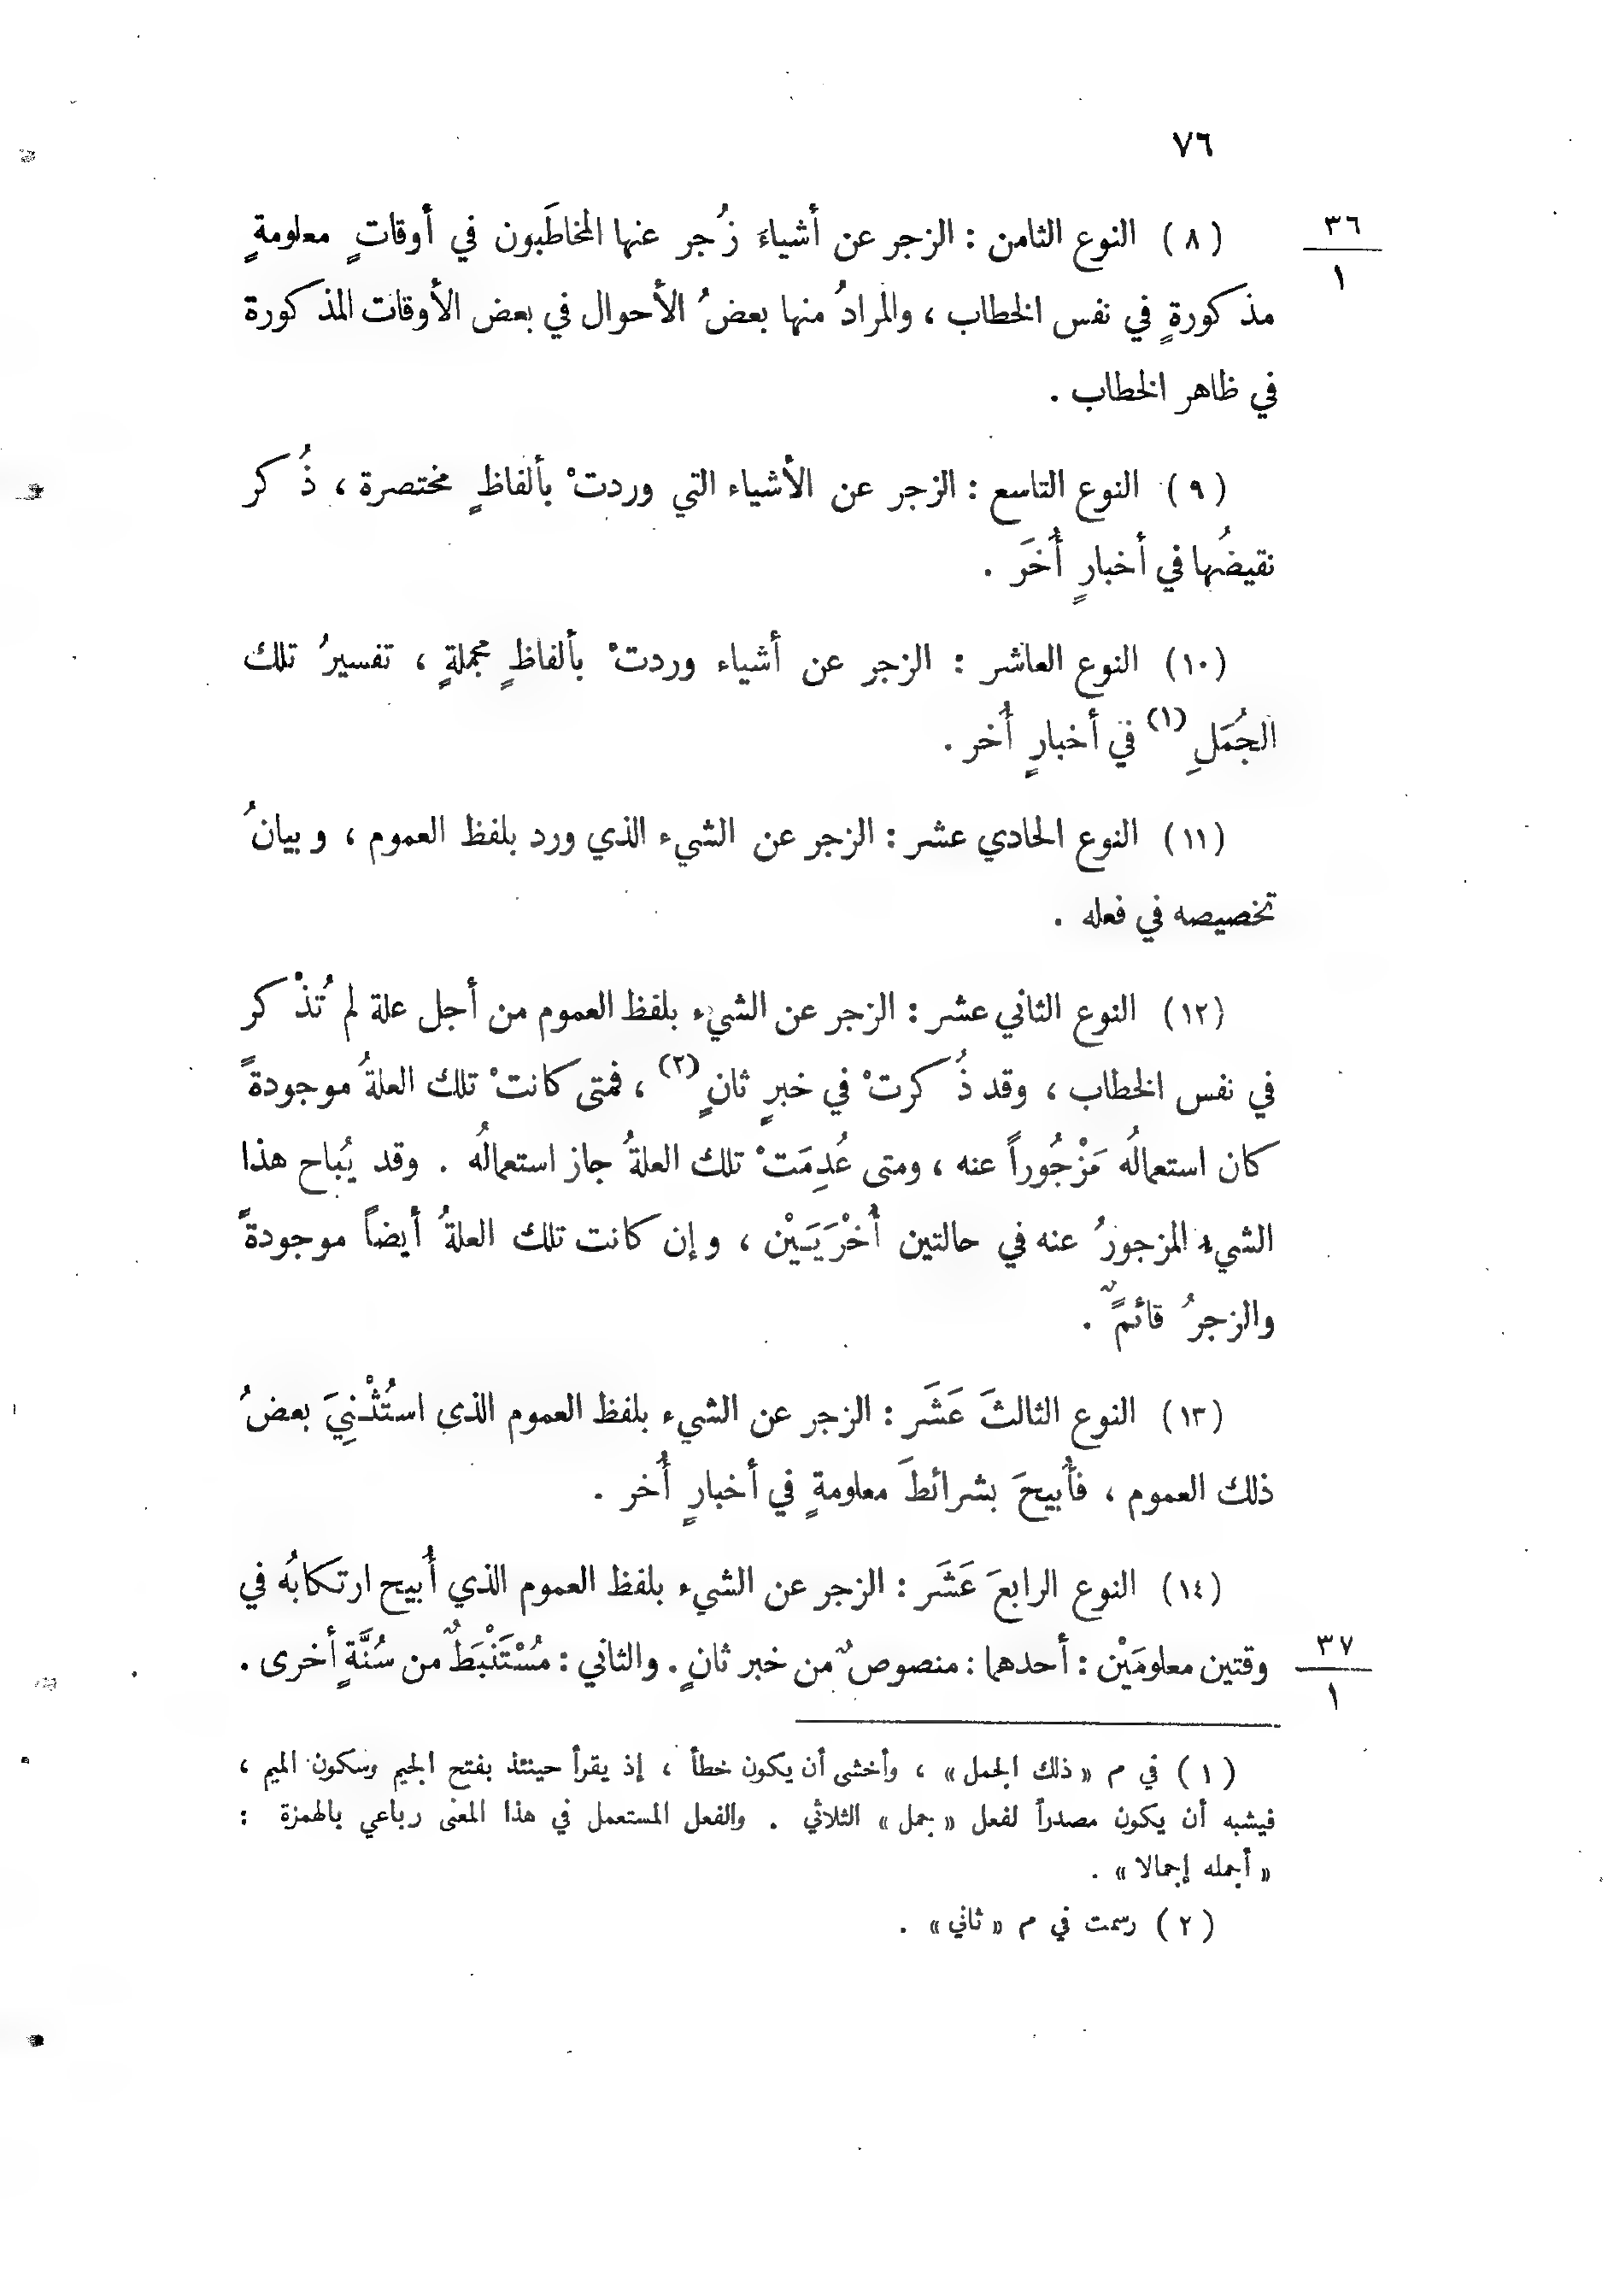 ٧٦
٣٦
١
( ٨ ) النوع الثامن : الزجر عن أشياءَ زُجر عنها المخاطَبون في أوقاتٍ معلومةٍ
مذكورةٍ في نفس الخطاب ، والمرادُ منها بعضُ الأحوال في بعض الأوقات المذكورة
في ظاهر الخطاب .
( ٩ ) النوع التاسع : الزجر عن الأشياء التي وردتْ بألفاظٍ مختصرة ، ذُكر
نقيضُها في أخبارٍ أُخَر .
(١٠) النوع العاشر : الزجر عن أشياء وردتْ بألفاظٍ مجملةٍ ، تفسيرُ تلك
الجُمَلِ (١) في أخبارٍ أُخر .
(١١) النوع الحادي عشر : الزجر عن الشيء الذي ورد بلفظ العموم ، وبيانُ
تخصيصه في فعله .
(١٢) النوع الثاني عشر : الزجر عن الشيء بلفظ العموم من أجل علة لم تُذْكر
في نفس الخطاب ، وقد ذُكرتْ في خبرٍ ثانٍ (٢) ، فمتى كانتْ تلك العلةُ موجودةً
كان استعمالُه مَزْجُوراً عنه ، ومتى عُدِمَتْ تلك العلةُ جاز استعمالُه . وقد يُباح هذا
الشيء المزجورُ عنه في حالتين أُخْرَيَيْن ، وإن كانت تلك العلةُ أيضاً موجودةً
والزجرُ قائمٌ .
(١٣) النوع الثالثَ عَشَر : الزجر عن الشيء بلفظ العموم الذي استُثْنِيَ بعضُ
ذلك العموم ، فأُبيحَ بشرائطَ معلومةٍ في أخبارٍ أُخر .
(١٤) النوع الرابعَ عَشَر : الزجر عن الشيء بلفظ العموم الذي أُبيح ارتكابُه في
٣٧
١
وقتين معلومَيْن : أحدهما : منصوصٌ من خبر ثانٍ . والثاني : مُسْتَنْبَطٌ من سُنَّةٍ أخرى .
( ١ ) في م « ذلك الجمل » ، وأخشى أن يكون خطأ ، إذ يقرأ حينئذ بفتح الجيم وسكون الميم ،
فيشبه أن يكون مصدراً لفعل « جمل » الثلاثي . والفعل المستعمل في هذا المعنى رباعي بالهمزة :
« أجمله إجمالا » .
( ٢ ) رسمت في م « ثاني » .